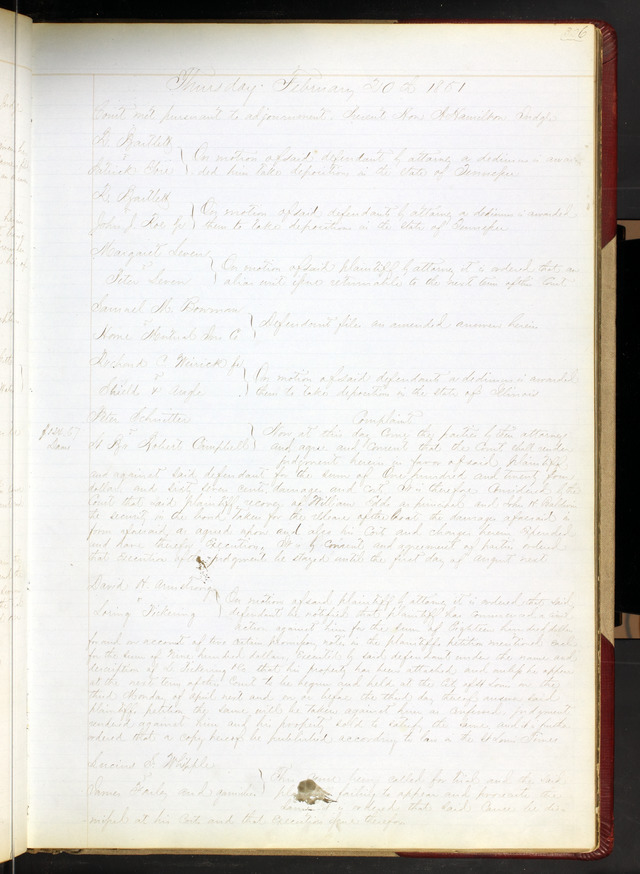 326
Thursday February 20th 1851
Court met pursuant to adjournment. Present Hon A Hamilton Judge
Bartlett
vs
On motion of said defendant by attorney a dedimus is awar
ded him take deposition in the state of Tennessee
Bartlett
vs
On motion of said defendants by attorney a dedimus is awarded
John J. Roe them to take deposition in the state of Tennessee
Margaret Leven
vs
On motion of said plaintiff by attorney it is ordered that an
Peter Leven alias writ issue returnable to the next term of this Court
Samuel M. Bowman
vs
Defendant files an amended answer herein
Home Mutual Ins Co
vs
On motion of said defendants a dedimus is awarded
them to take deposition in the state of Illinois
Peter
Complaint
vs
Now at this day Come the parties by their attorneys
Robert Campbell and agree and Consent that the Court shall render
judgment herein in favor of said plaintiff
and against said defendant for the sum of One hundred and twenty four
dollars and sixty seven cents damages and Cost. It is therefore Considered by the
Court that said plaintiff recover of William as principal and John
the security in the bond taken for the release of the boat the damages aforesaid in
form aforesaid as agreed upon and also his Cost and charges herein expended
and have thereof Execution. And by Consent and agreement of parties ordered
that execution of this judgment be stayed until the first day of August next
David H. Armstrong
vs
On motion of said plaintiff by attorney it is ordered that said
Loring Pickering defendant be notified that plaintiff has Commenced an
action against him for the sum of Eighteen hundred dollars
on account of two certain promissory notes in the plaintiffs petition mentioned each
for the sum of Nine hundred dollars by said defendant under the name and
description of L. Pickering & Co that his property has been attached, and unless he appear
at the next term of this Court to be begun and held at the City of St Louis on the
third Monday of April next and on or before the third day thereof answer said
plaintiffs petition the same will be taken against him as confessed judgment
rendered against him and his property sold to satisfy the same, and it is further
ordered that a copy hereof be published according to law in the St Louis Times
F. Whipple
vs
This cause being called for trial and the said
James and garnishee plaintiff failing to appear and prosecute the
same ordered that said Cause be dis-
missed at his Costs and that Execution issue therefor